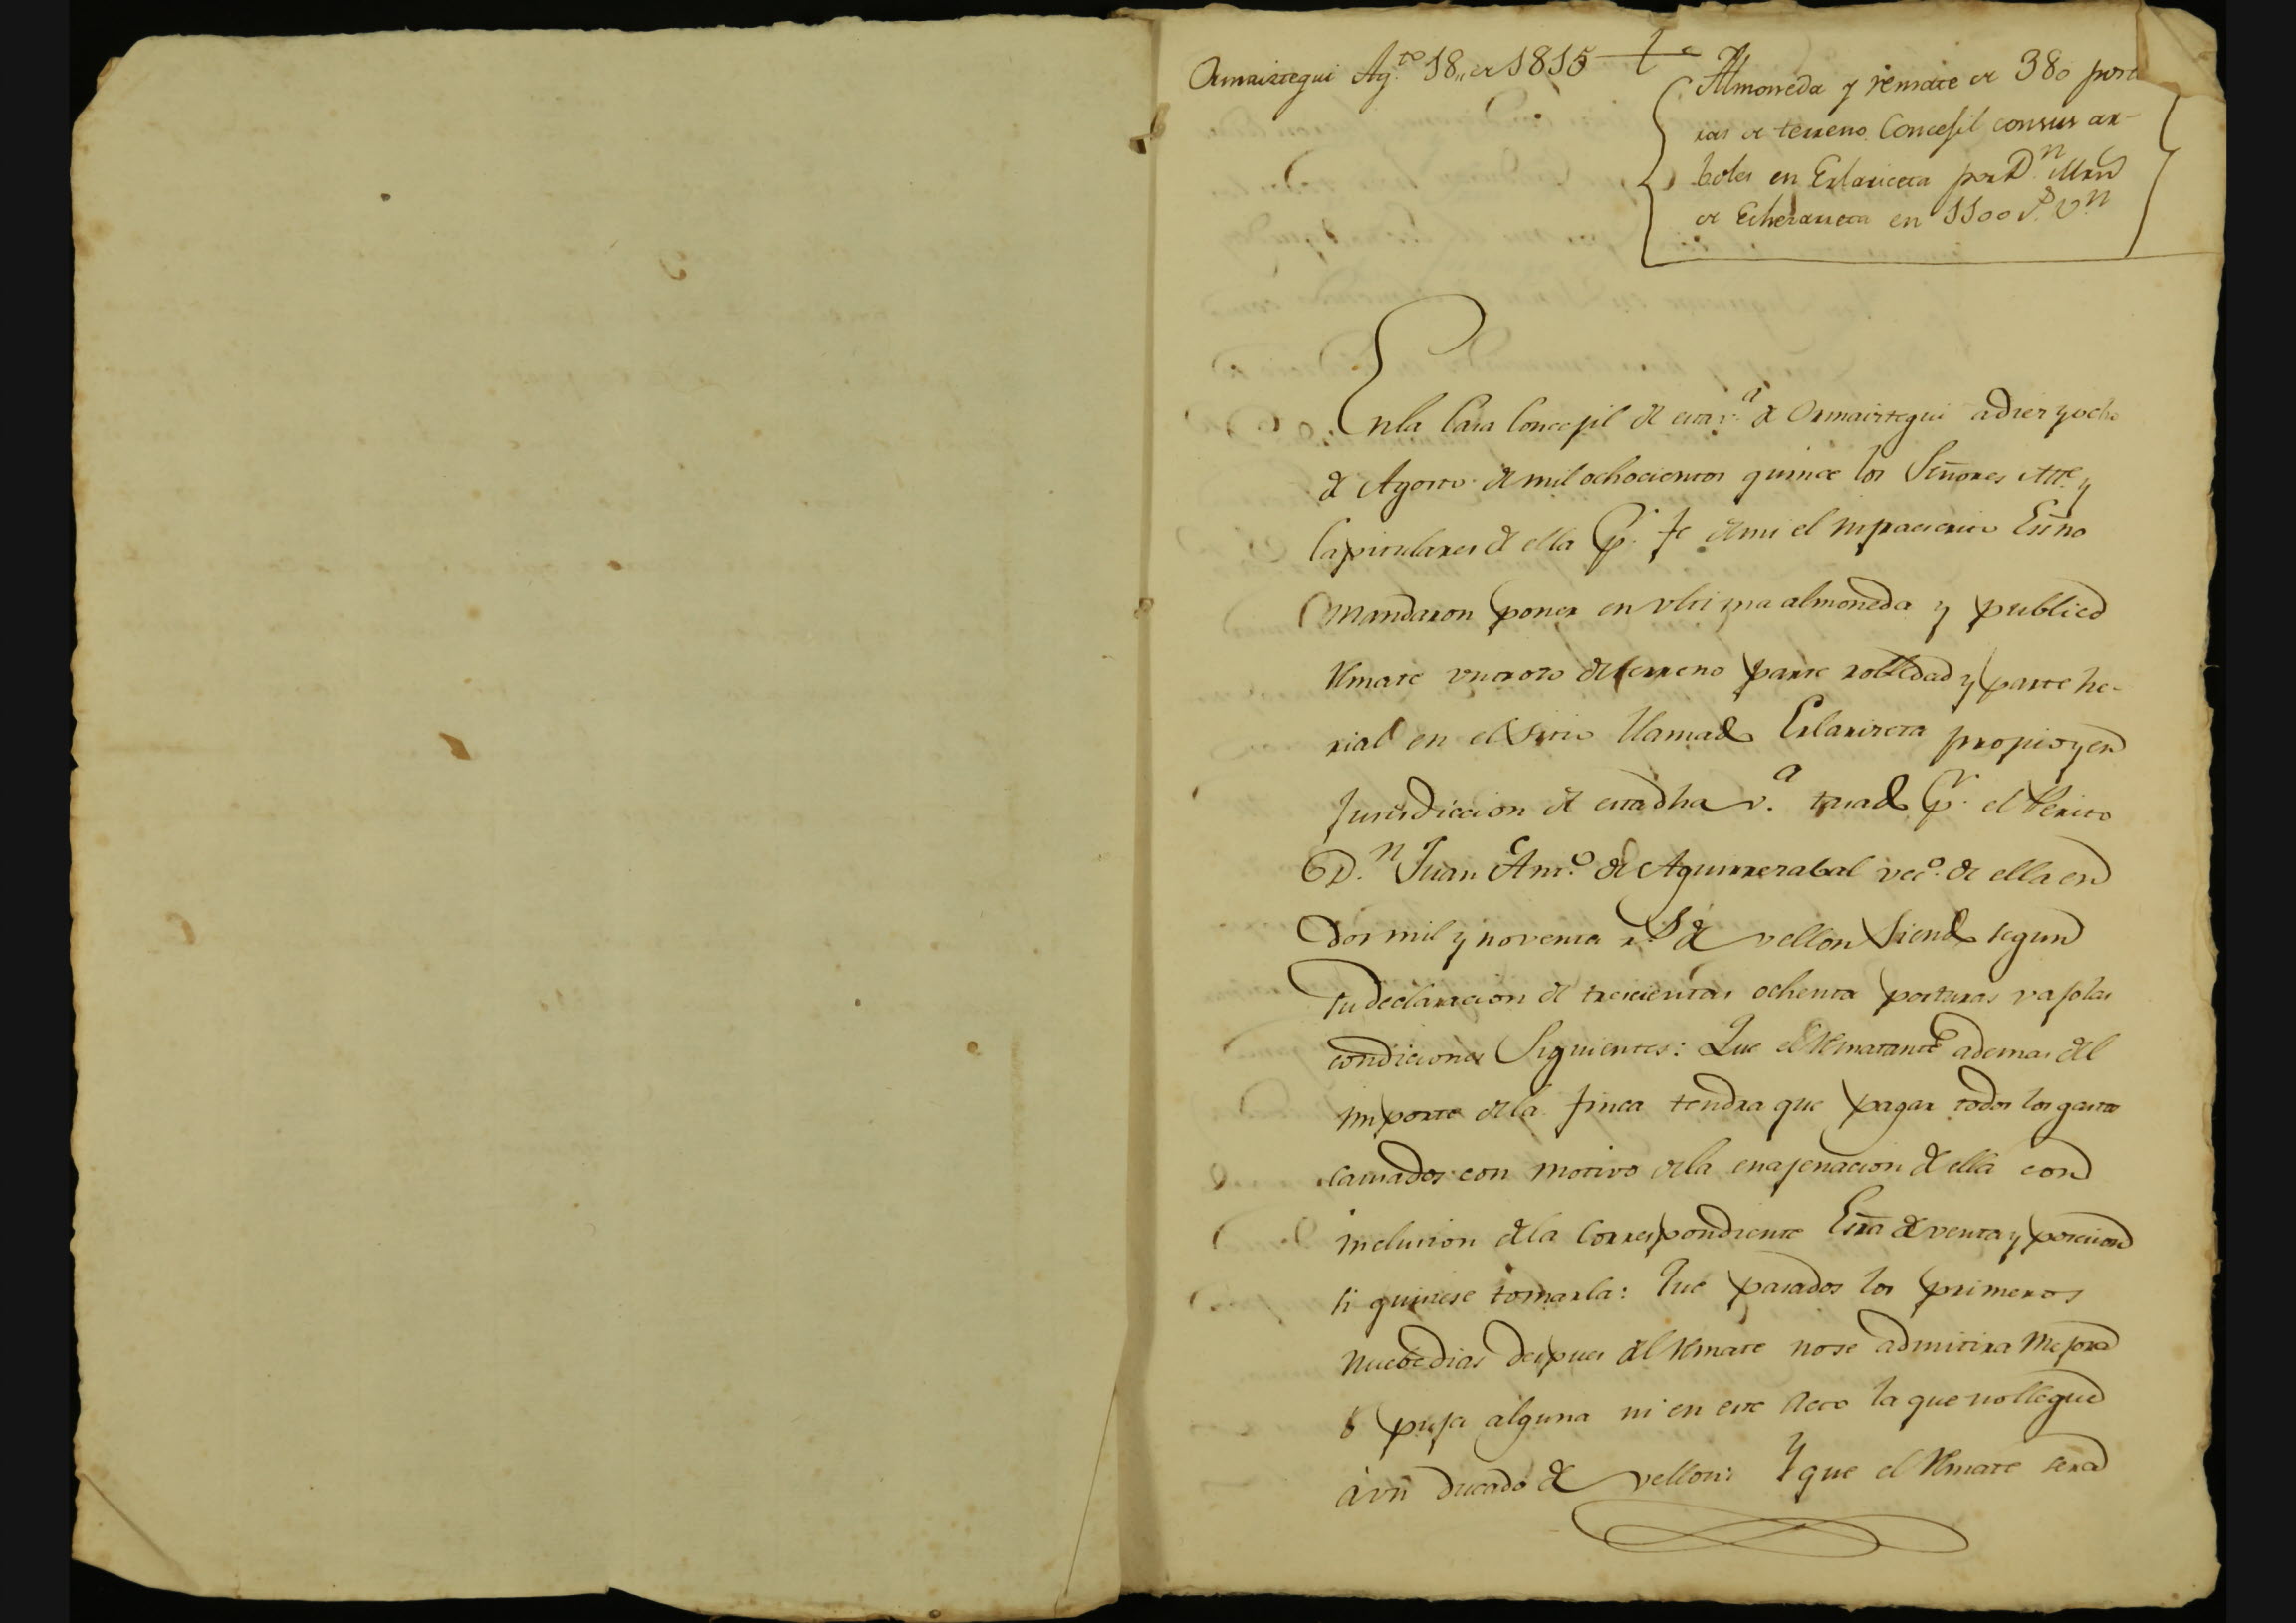 Ormaiztegui Ag.to 18,, de 1815
Almoneda y remate de 380 postu
ras de terreno Concejil con sus ar-
boles en Erlarizeta por D.n Mrn
de Echezarreta en 1100 r.s v.n
En la Casa Concejil de esta v.a de Ormaiztegui a diez y ocho
de Agosto de mil ochocientos quince los Señores Alc.e y
Capitulares de ella p.r fe de mi el infraescrito Essno
Mandaron poner en vltima almoneda y publico
Remate vn trozo de terreno parte robledad y parte he-
rial en el sitio llamado Erlarizeta propio y en
Jurisdiccion de esta dha v.a tasado p.r el Perito
D.n Juan Ant.o de Aguirrezabal vec.o de ella en
dos mil y noventa r.s de vellon siendo segun
su declaracion de trescientas ochenta posturas vajo las
condiciones Siguientes: Que el Rematante ademas del
importe de la finca tendra que pagar todos los gastos
causados con motivo de la enajenacion de ella con
inclusion de la correspondiente Essra de venta y posesion
si quisiese tomarla: Que pasados los primeros
nuebe dias despues del Remate no se admitira Mejora
ó puja alguna ni en este Acto la que no llegue
á vn ducado de vellon: Y que el Remate sera